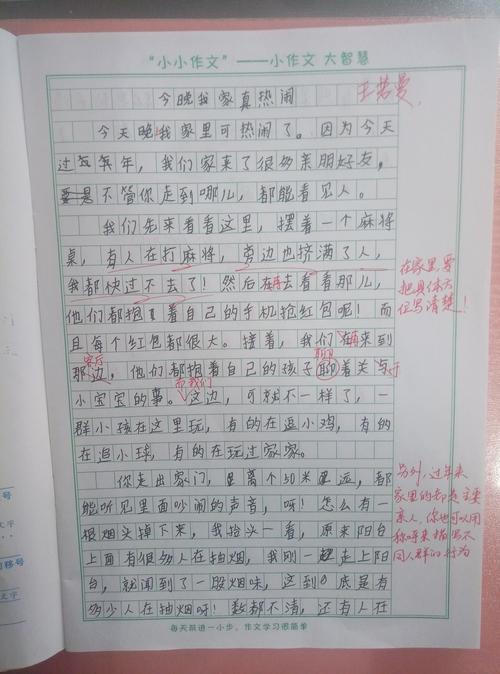 “小小作文”——小作文 大智慧
今晚我家真热闹
王若曼
今天晚我家里可热闹了。因为今天
过年,我们家来了很多亲朋好友,
不管你走到哪儿,都能看见人。
我们先来看看这里,摆着一个麻将
桌,有人在打麻将,旁边也挤满了人,
我都快过不去了!然后再去看看那儿,
他们都抱着自己的手机抢红包呢!而
且每个红包都很大。接着,我们再来到
客厅
那边,他们都抱着自己的孩子聊着关于
而我们
小宝宝的事。这边,可就不一样了,一
群小孩在这里玩,有的在逗小鸡,有的
在追小球,有的在玩过家家。
你走出家门,里离个50米里远,都
能听见里面吵闹的声音,呀!怎么有一
根烟头掉下来,我抬头一看,原来阳台
上面有很多人在抽烟,我刚走上阳
台,就闻到了一股烟味,这到底是有
多少人在抽烟呀!数都不清,还有人在
在家里,要
把具体方
位写清楚!
另外,过年来
家里的都是主要
亲人,你也可以用
称呼来描写不
同人群的行为
每天跃进一小步,作文学习很简单
号
文字
移号
文字